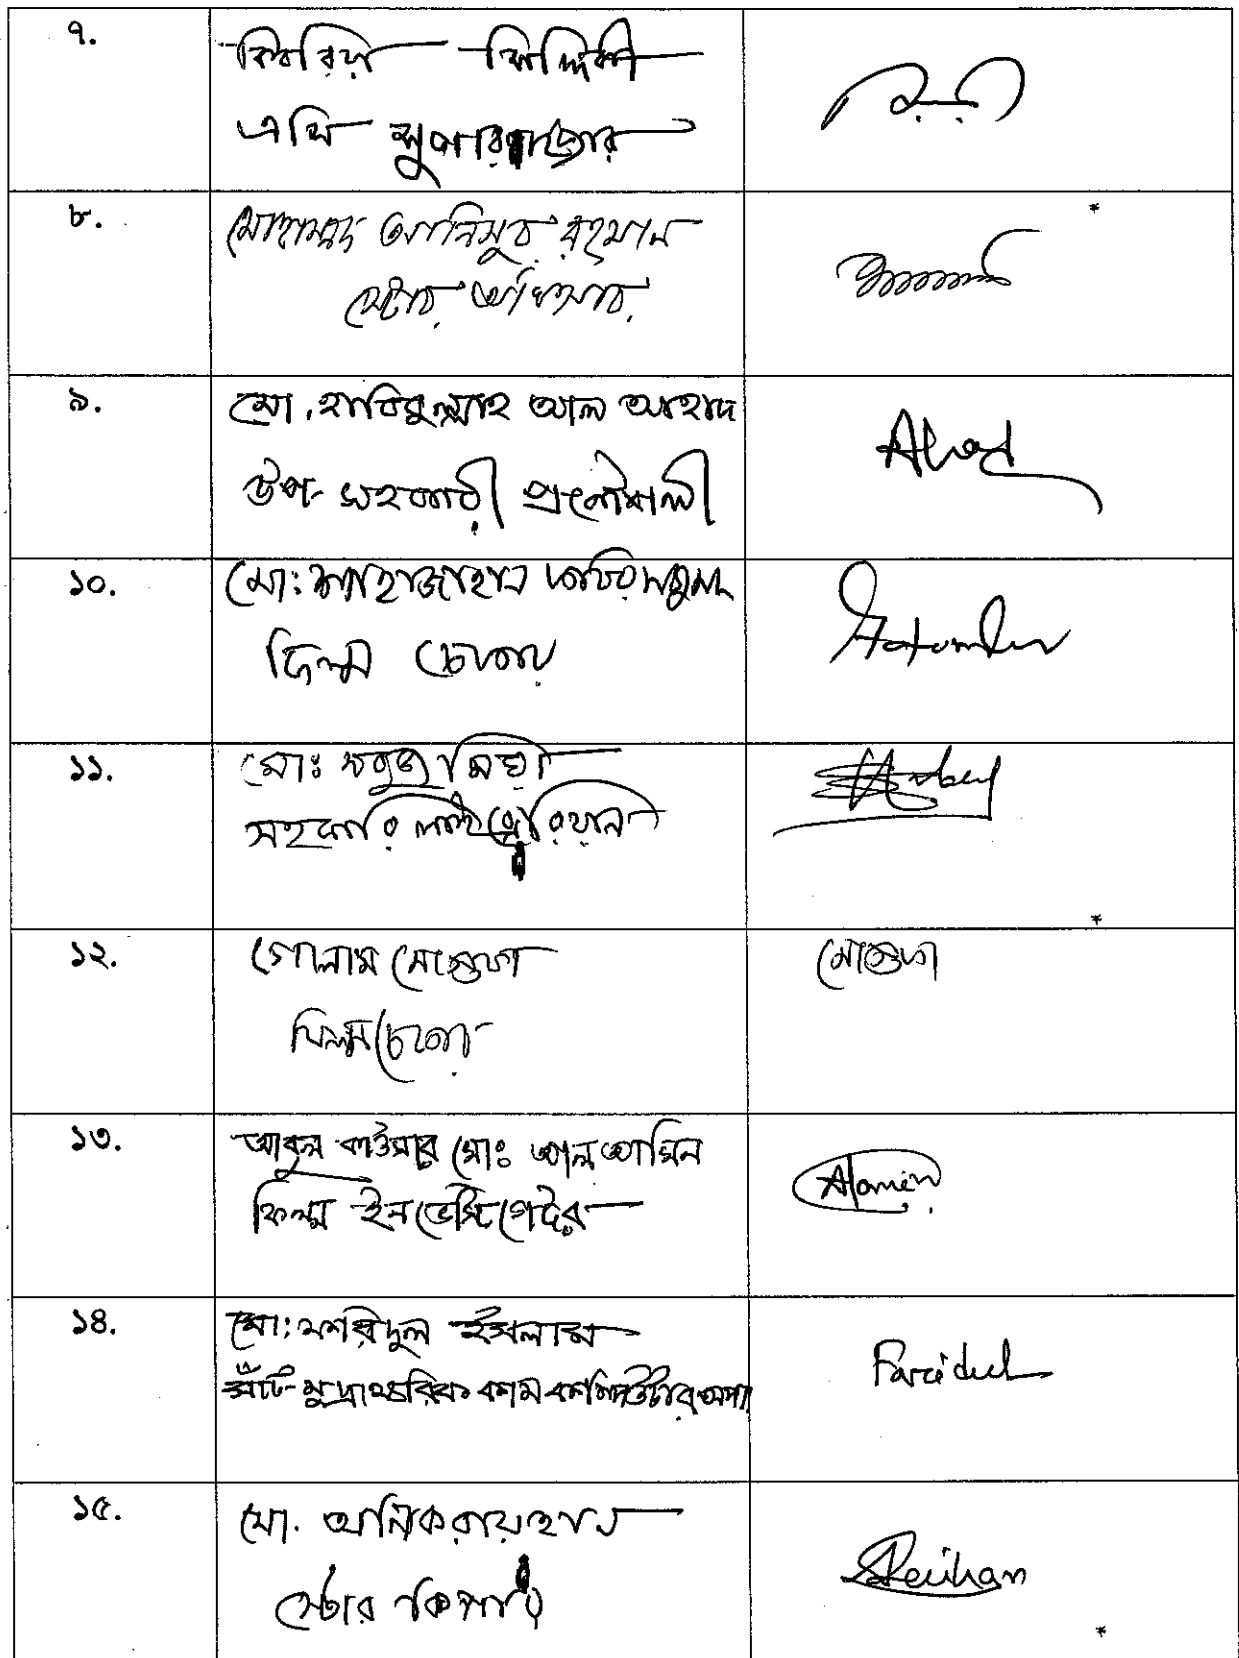 ৭.
কিবরিয়া সিদ্দিকী
এসি সুপারভাইজার
৮.
মোহাম্মদ আনিসুর রহমান
স্টোর অফিসার
৯.
মো. হাবিবুল্লাহ আল আহাদ
উপ-সহকারী প্রকৌশলী
Ahad
১০.
মো: শাহাজাহান
ফিল্ম চেকার
১১.
মোঃ মিয়া
সহকারি লাইব্রেরিয়ান
১২.
গোলাম মোস্তফা
মোস্তফা
ফিল্ম চেকার
১৩.
আবুল কাউসার মোঃ আল আমিন
ফিল্ম ইনভেস্টিগেটর
Alamin
১৪.
মো: ফরিদুল ইসলাম
সাঁট-মুদ্রাক্ষরিক কাম কম্পিউটার অপা
Faridul
১৫.
মো. আনিক রায়হান
স্টোর কিপার
Reihan